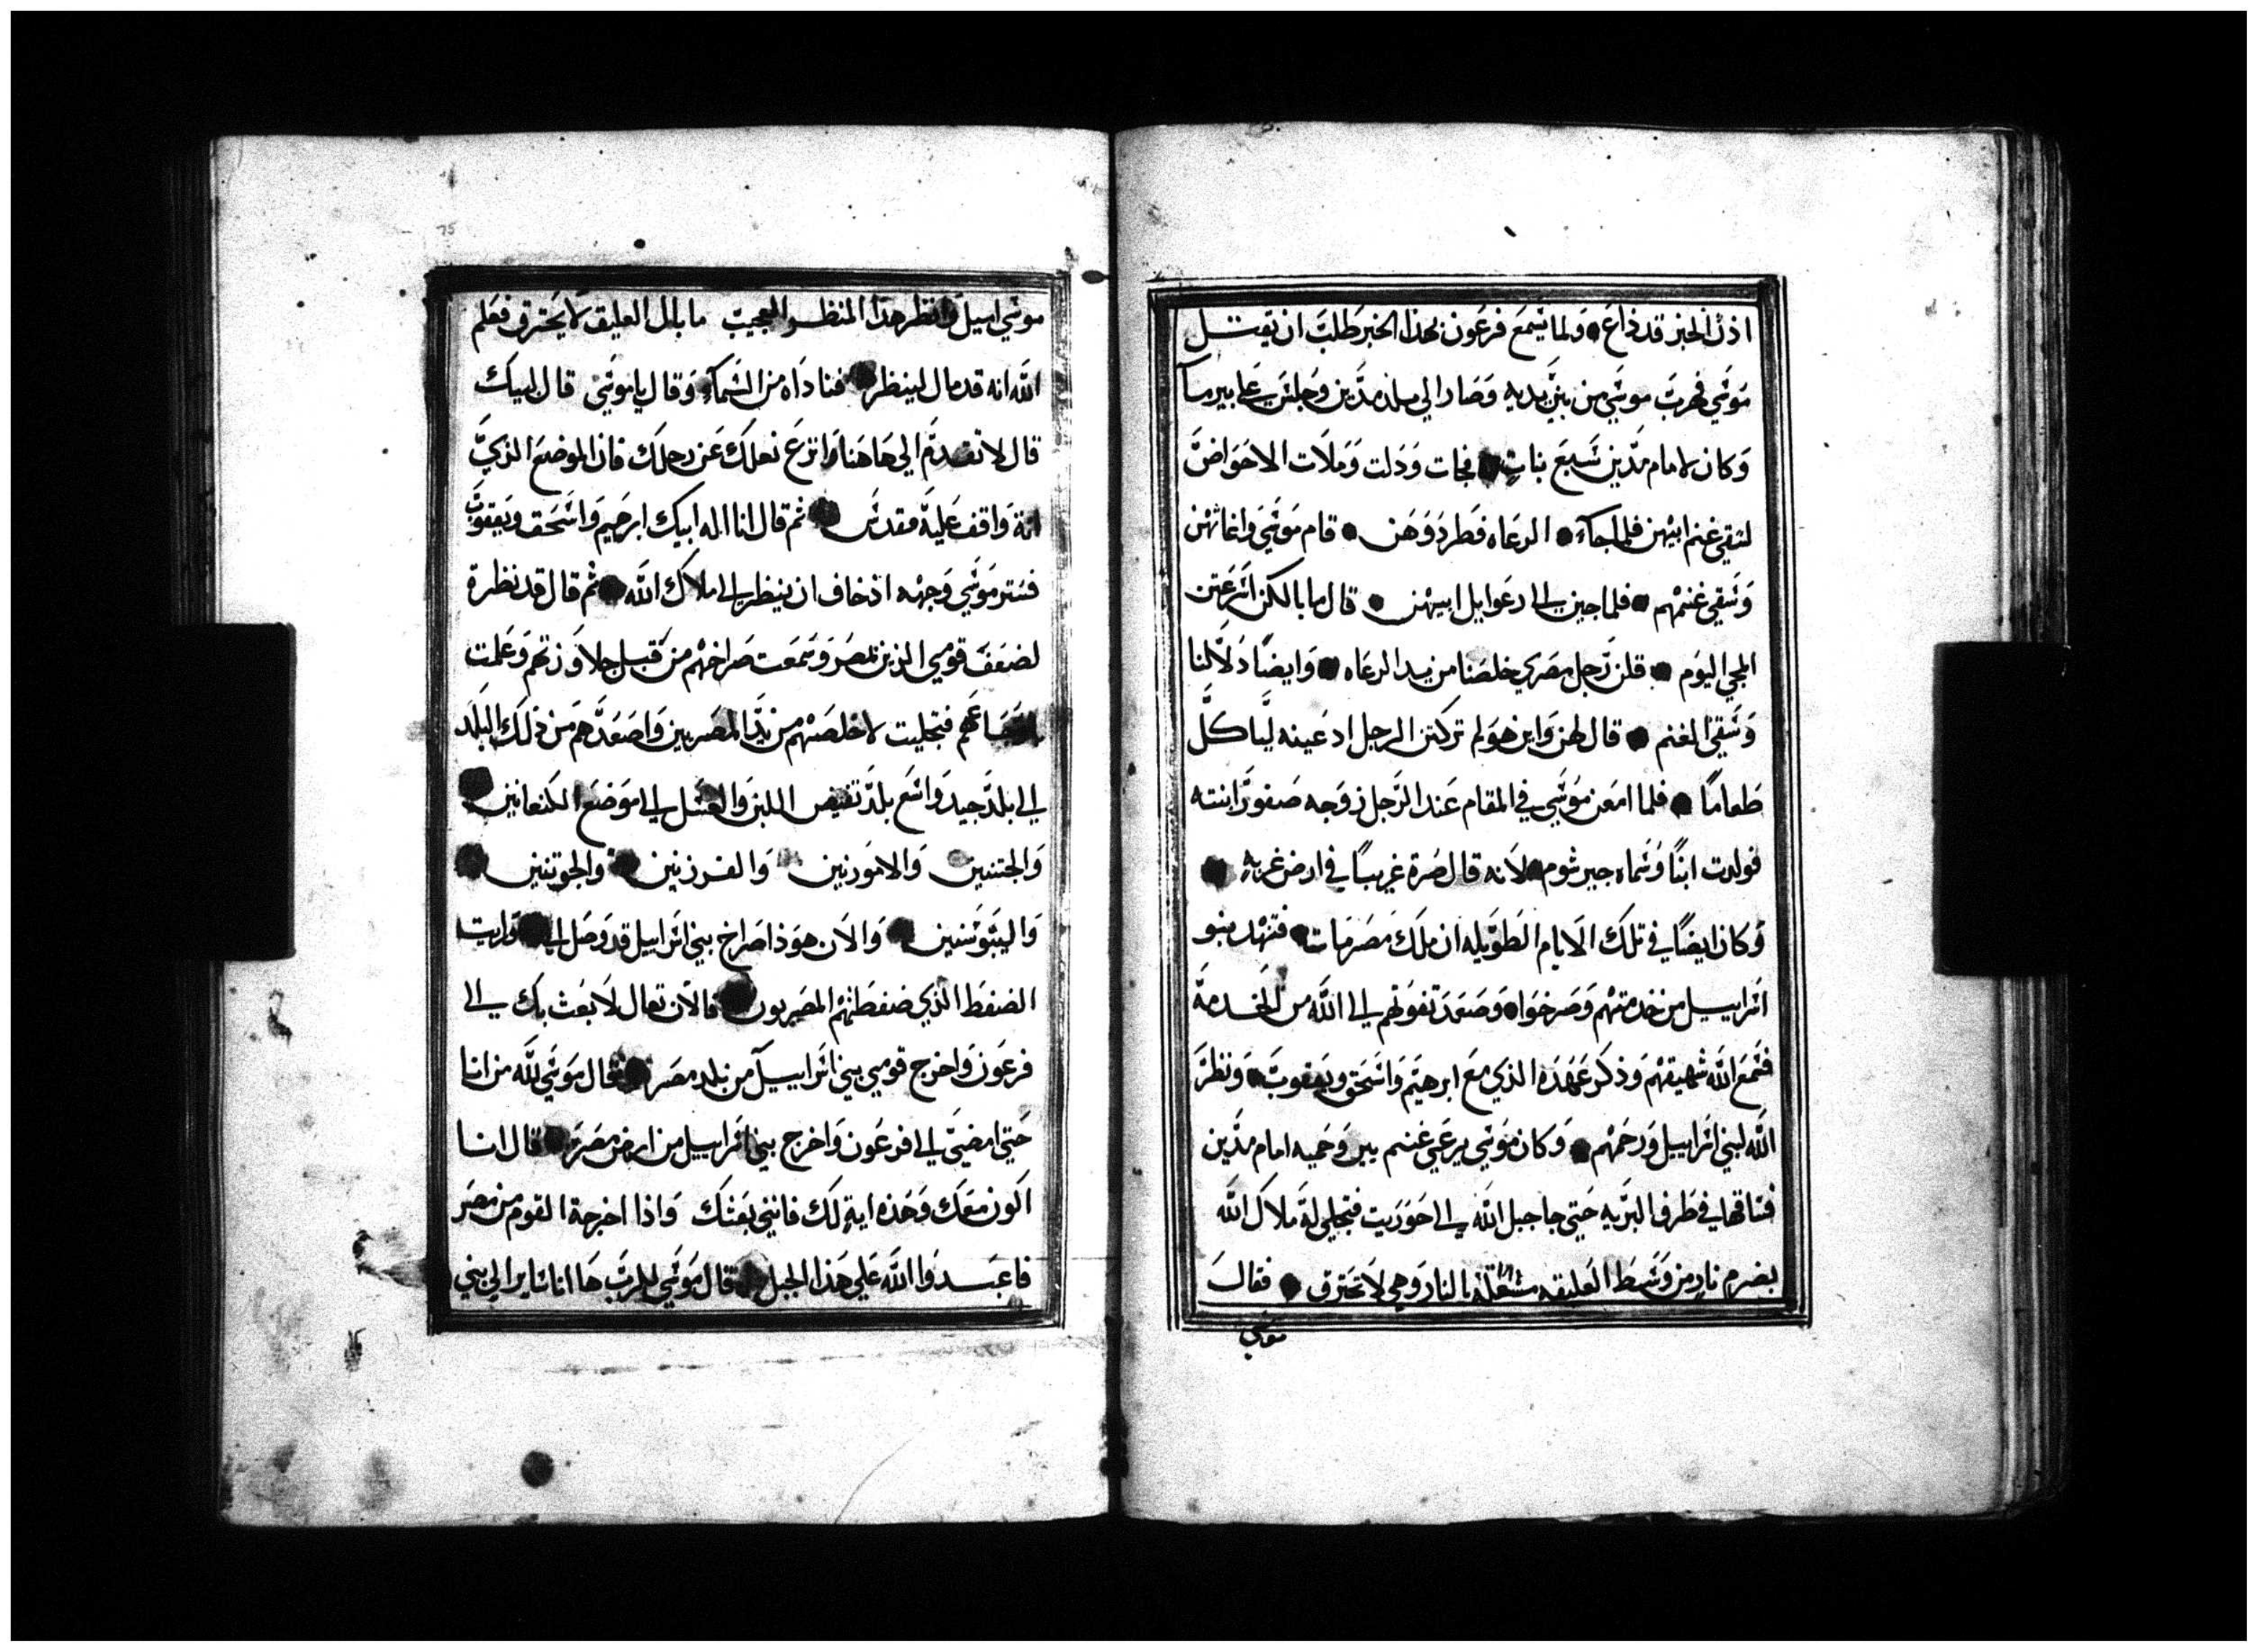 اذن الخبر قد ذاع ● ولما سمع فرعون بهذا الخبر طلب ان يقتل
موسي فهرب موسي من بين يديه وصار الي بلد مدين وجلس علي بير مآ
وكان لامام مدين سبع بنات ● فجات ودلت وملات الاحواض
لتقي غنم ابيهن فلما جآء ● الرعاه فطردوهن ● قام موسي واغاثهن
وسقي غنمهم ● فلما جين الي رعوايل ابيهن ● قال ما بالكن اسرعتن
المجي اليوم ● قلن رجل مصري خلصنا من يد الرعاه ● وايضًا دلا لنا
وسقي الغنم ● قال لهن واين هو لم تركتن الرجل ادعينه لياكل
طعامًا ● فلما امعن موسي في المقام عند الرجل زوجه صفورا ابنته
فولدت ابنًا وسماه جيرشوم ● لانه قال صرة غريبًا في ارض غربه ●
وكان ايضًا في تلك الايام الطويله ان ملك مصر مات ● فتنهد بنو
اسراييل من خدمتهم وصرخوا ● وصعد تغوتهم الي الله من الخدمة
فسمع الله شهيقهم وذكر عهده الذي مع ابرهيم واسحق ويعقوب ● ونظر
الله لبني اسراييل ورحمهم ● وكان موسي يرعي غنم يبر وحميه امام مدين
فساقها في طرف البريه حتي جا جبل الله الي حوريت فتجلي له ملاك الله
بضرم نار من وسط العليقه مشتعلة بالنار وهي لا تحترق ● فقال
موسي
موسي اميل وانظر هذا المنظر العجيب ما بال العليق لا يحترق فعلم
الله انه قد مال لينظر ● فناداه من السمآء وقال يا موسي قال لبيك
قال لا تقدم الي هاهنا وانزع نعلك عن رجلك فان الموضع الذي
انة واقف علية مقدس ● ثم قال انا اله ابيك ابرهيم واسحق ويعقوب
فستر موسي وجهه اذ خاف ان ينظر الي ملاك الله ● ثم قال قد نظرة
لضعف قومي الذين بمصر وسمعت صراخهم من قبل جلاوزتهم وعلمت
باوجاعهم فتجليت لاخلصهم من يد المصريين واصعدهم من ذلك البلد
الي بلد جيد واسع بلد تفيض اللبن والعسل الي موضع الكنعانين ●
والحتنين والامورنين والفرزنين ● والجوتنين ●
واليبوسنين ● والان هوذا صراخ بني اسراييل قد وصل الي ● ورايت
الضغط الذي ضغطتهم المصريون ● فالان تعال لابعث بك الي
فرعون واخرج قومي بني اسراييل من بلد مصر ● فقال موسي لله من انا
حتي امضي الي فرعون واخرج بني اسراييل من ارض مصر ● قال انا
اكون معك وهذه اية لك فانني بعثك واذا اخرجة القوم من مصر
فاعبدوا الله علي هذا الجبل ● قال موسي للرب ها انا ساير الي بني